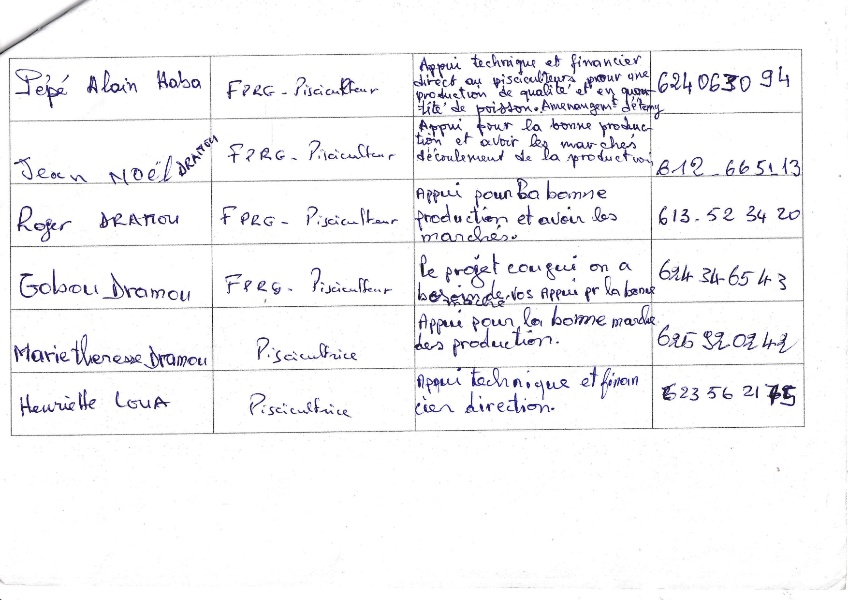 Pépé Alain Haba
FPRG - Pisciculteur
Appui technique et financier
direct au pisciculteurs prour une
production de qualité et en quan-
tité de poisson. Amenangemt
624 06 30 94
Jean NOËL DRAMOU
FPRG - Pisciculteur
Appui pour la bonne produc-
tion et avoir les marchés
découlement de la production
612_665113
Roger DRAMOU
FPRG - Pisciculteur
Appui pour la bonne
production et avoir les
marchés.
613.52 34 20
Gobou Dramou
FPRG - Pisciculteur
le projet on a
besoin de vos Appui pr la bonne
624 34 65 43
Marie theresse Dramou
Piscicultrice
Appui pour la bonne marche
des production.
625 92 02 42
Henriette LOUA
Piscicultrice
Appui technique et finan
cier direction.
623 56 21